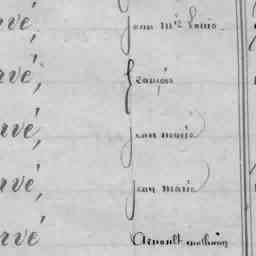 rvé, jean m^ie Louis
rvé, françois
rvé, jean marie
rvé, jean marie
rvé Arnoult mathurin